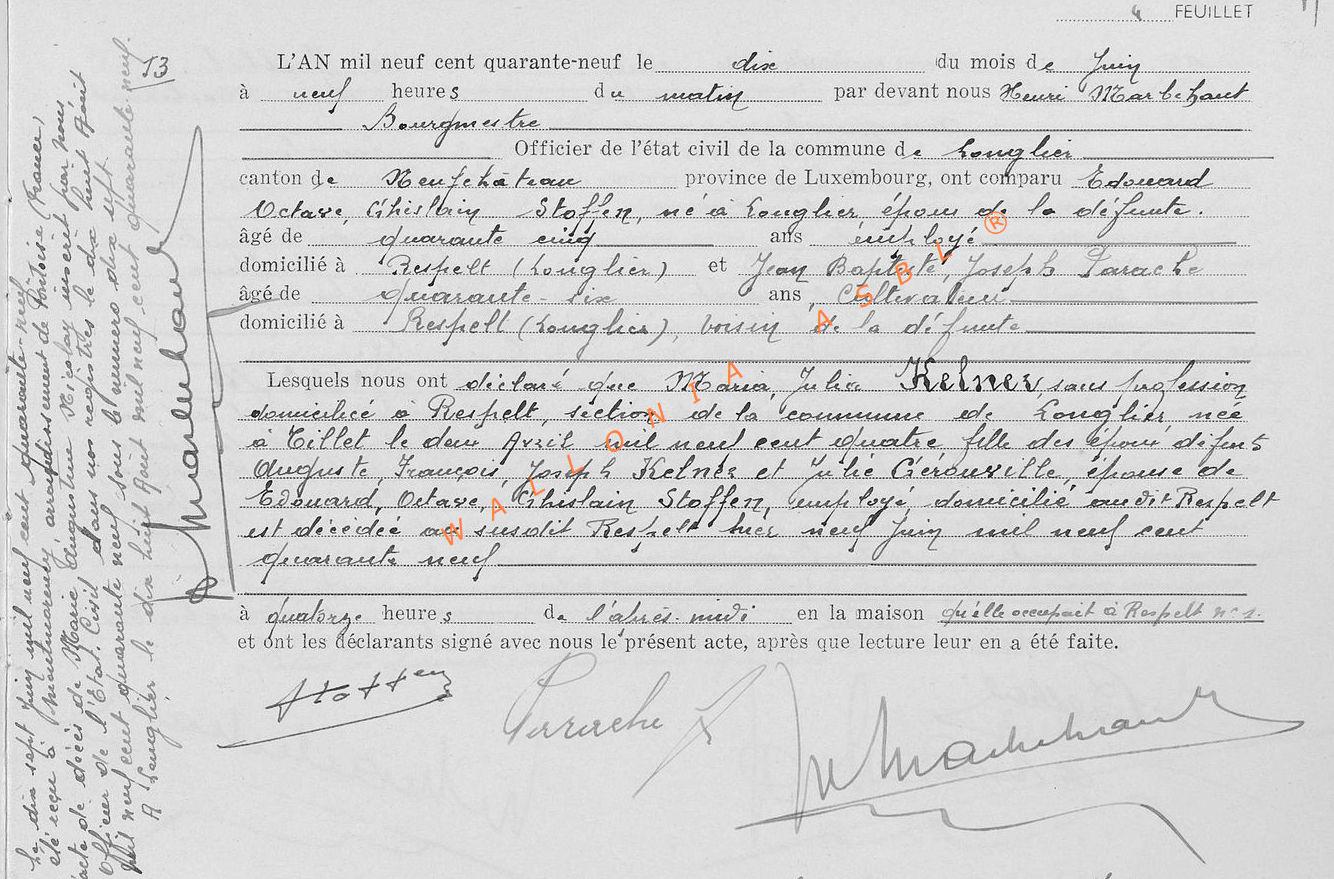 4 FEUILLET
13
L'AN mil neuf cent quarante-neuf le dix du mois de Juin
à neuf heures du matin par devant nous Henri Marbehant
Bourgmestre
Officier de l'état civil de la commune de Longlier
canton de Neufchâteau province de Luxembourg, ont comparu Edouard
Octave, Ghislain Stoffen, né à Longlier époux de la défunte.
âgé de quarante cinq ans employé
domicilié à Respelt (Longlier) et Jean Baptiste, Joseph Parache
âgé de quarante-six ans, Cultivateur
domicilié à Respelt (Longlier), voisin de la défunte
Lesquels nous ont déclaré que Maria, Julia Kelner, sans profession
domiciliée à Respelt, section de la commune de Longlier, née
à Tillet le deux Avril mil neuf cent quatre, fille des époux défunts
Auguste, François, Joseph Kelner et Julie Gérouville, épouse de
Edouard, Octave, Ghislain Stoffen, employé, domicilié audit Respelt
est décédée au susdit Respelt hier neuf Juin mil neuf cent
quarante neuf
à quatorze heures de l'après-midi en la maison qu'elle occupait à Respelt n° 1.
et ont les déclarants signé avec nous le présent acte, après que lecture leur en a été faite.
Stoffen
Parache J
H Marbehant
Le dix sept Juin mil neuf cent quarante-neuf
été reçu à Montmorency, arrondissement de Pontoise (France,
acte de décès de Marie Augustine Nicolay inscrit par nous
Officier de l'Etat. Civil dans nos registres le dix huit Août
mil neuf cent quarante neuf sous le numéro dix sept.
A Longlier le dix huit Août mil neuf cent quarante neuf.
Marbehant
WALLONIA ASBL ®